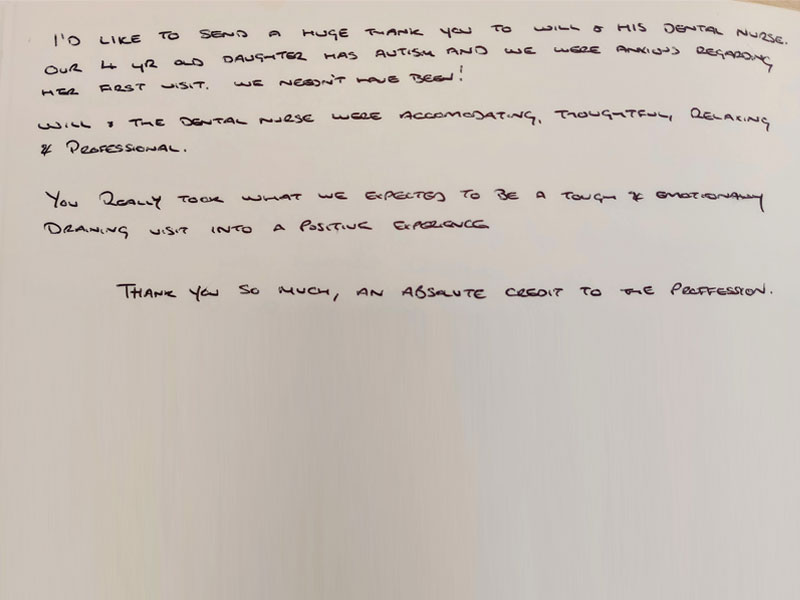 I'D LIKE TO SEND A HUGE THANK YOU TO WILL & HIS DENTAL NURSE.
OUR 4 YR OLD DAUGHTER HAS AUTISM AND WE WERE ANXIOUS REGARDING
HER FIRST VISIT. WE NEEDN'T HAVE BEEN!
WILL & THE DENTAL NURSE WERE ACCOMODATING, THOUGHTFUL, RELAXING
& PROFESSIONAL.
YOU REALLY TOOK WHAT WE EXPECTED TO BE A TOUGH & EMOTIONALLY
DRAINING VISIT INTO A POSITIVE EXPERIENCE
THANK YOU SO MUCH, AN ABSOLUTE CREDIT TO THE PROFFESSION.